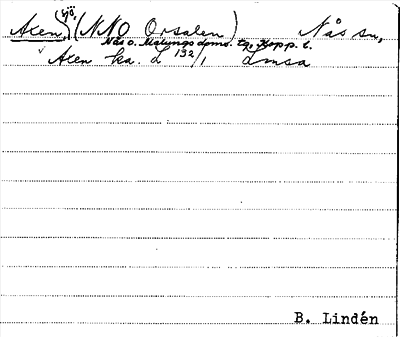 Aten, sjö. (NNO Orsalen) Nås sn,
Nås o. Malungs doms. tg, Kopp. l.
Aten ka. L 132/1 Lmsa
B. Lindén